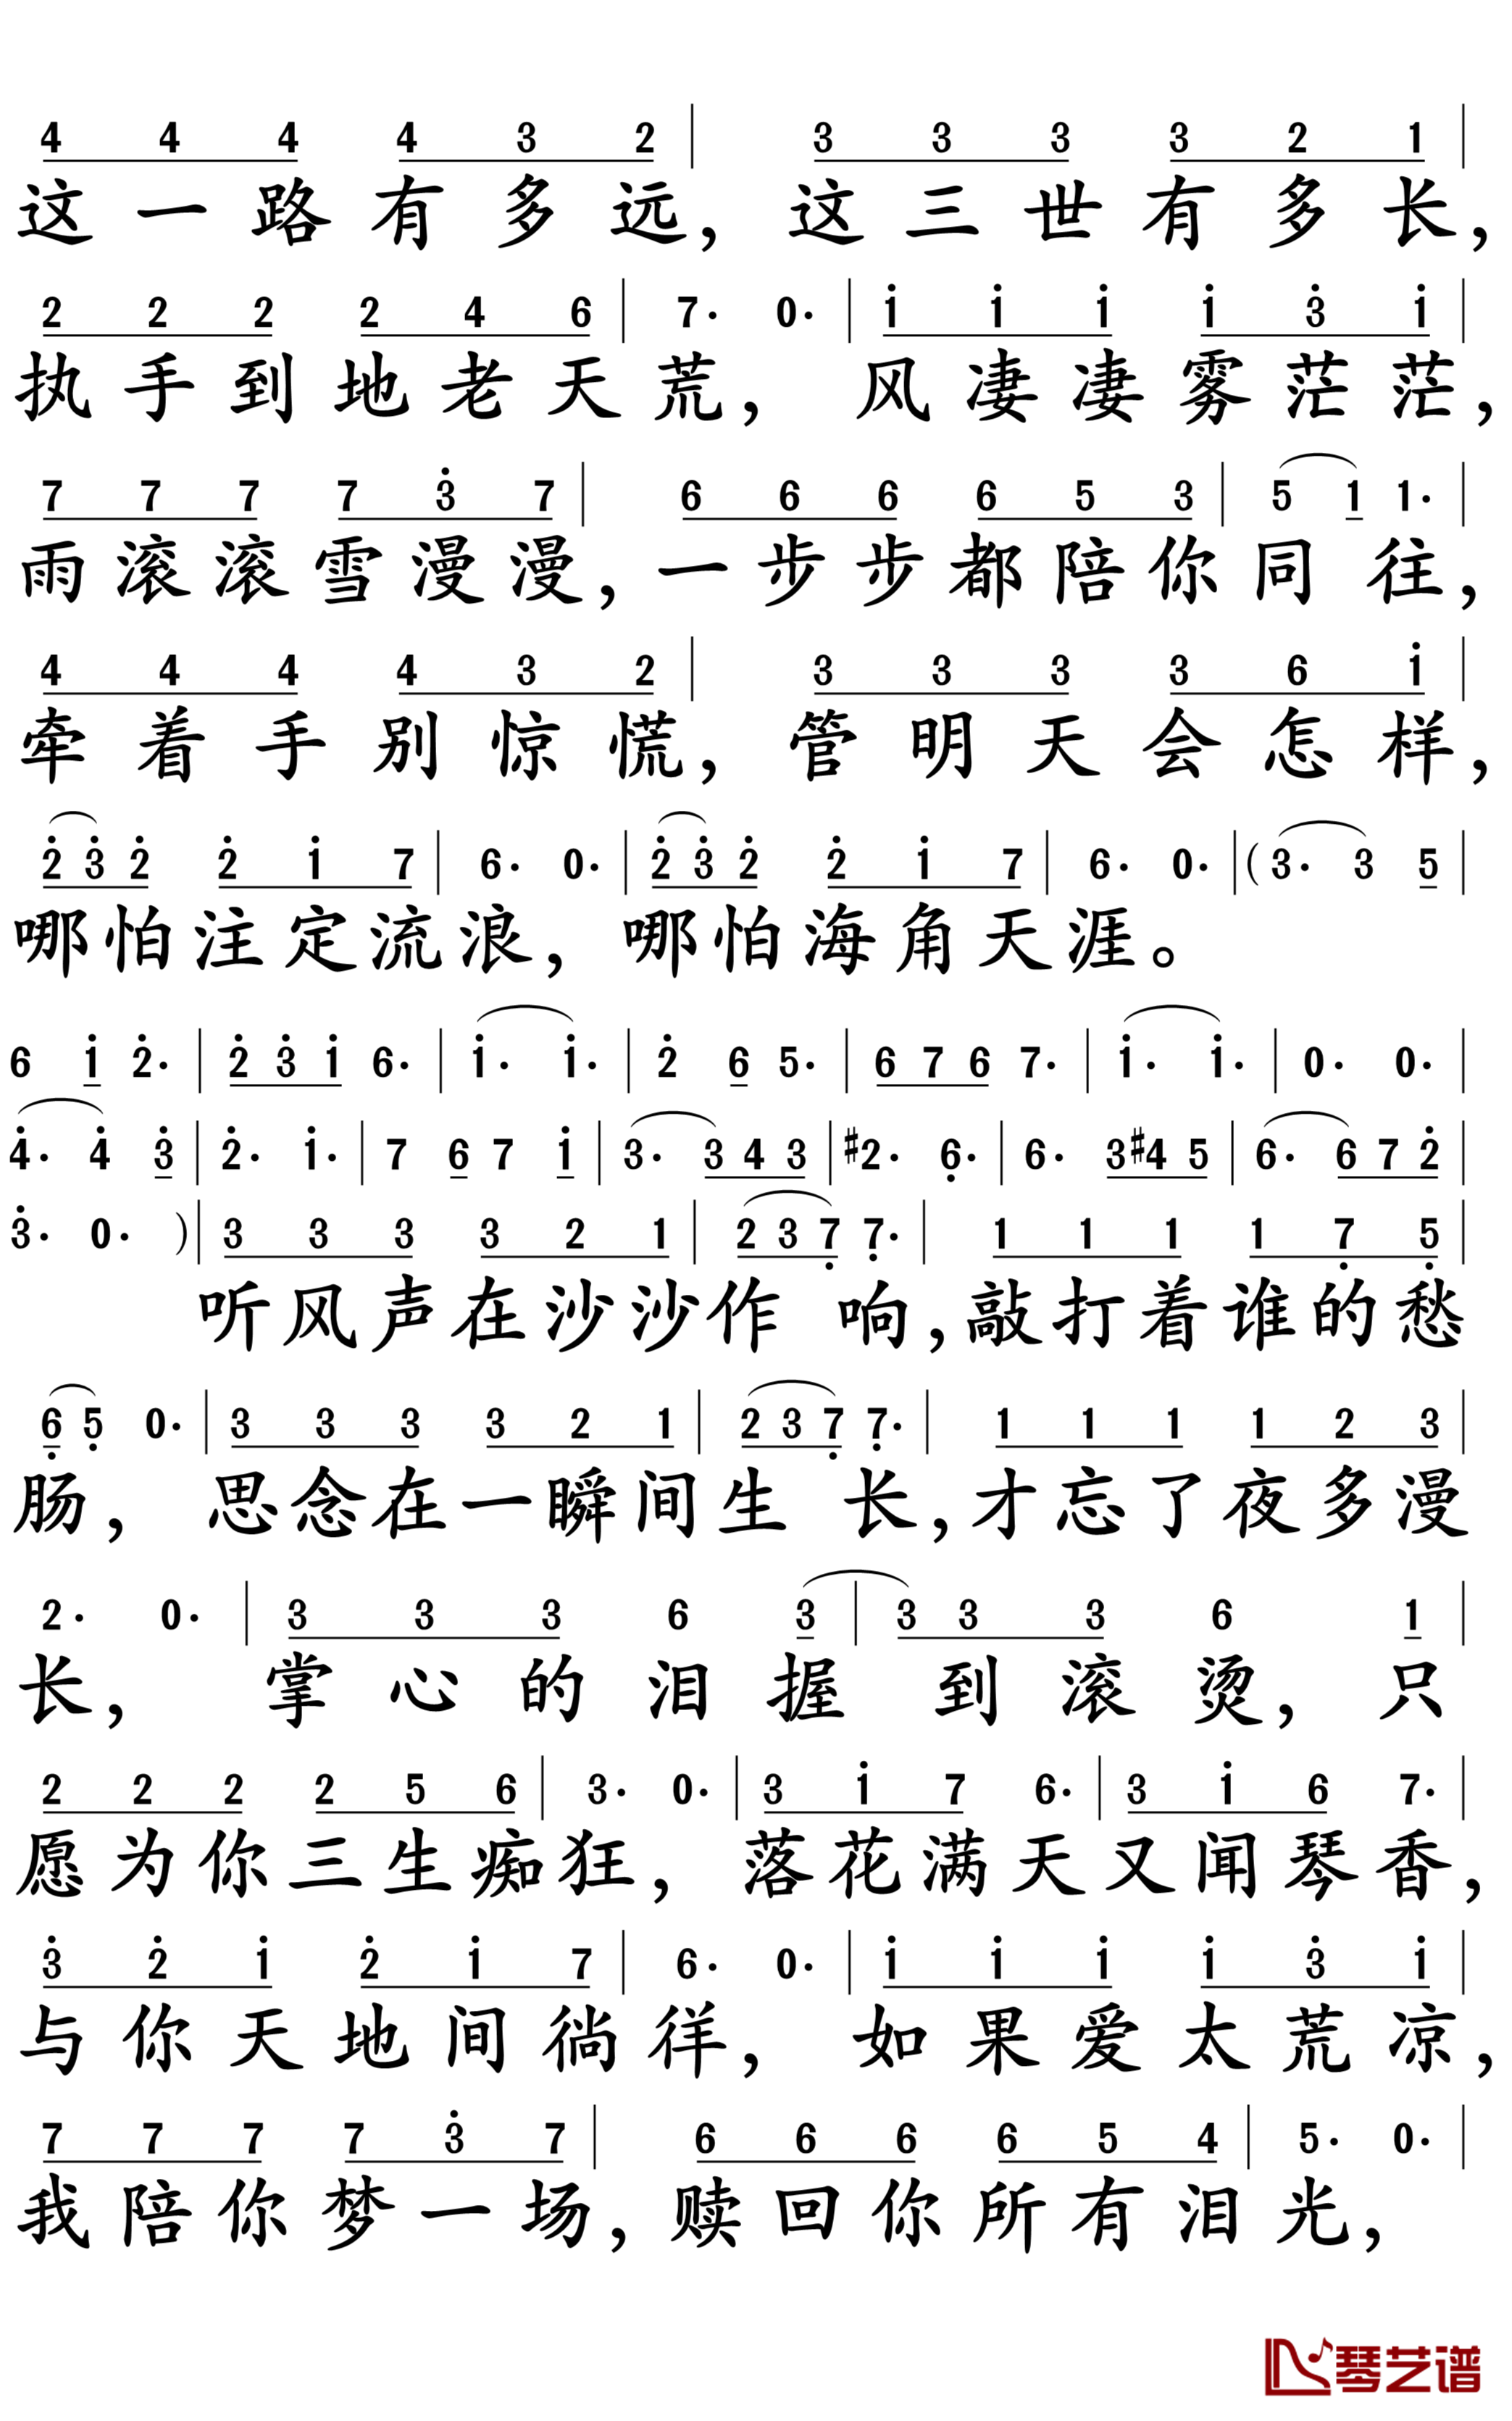 4 4 4 4 3 2 | 3 3 3 3 2 1 |
这一路有多远，这三世有多长，
2 2 2 2 4 6 | 7· 0· | i i i i 3̇ i |
执手到地老天荒，风凄凄雾茫茫，
7 7 7 7 3̇ 7 | 6 6 6 6 5 3 | 5 1 1· |
雨滚滚雪漫漫，一步步都陪你同往，
4 4 4 4 3 2 | 3 3 3 3 6 i |
牵着手别惊慌，管明天会怎样，
2̇ 3̇ 2̇ 2̇ i 7 | 6· 0· | 2̇ 3̇ 2̇ 2̇ i 7 | 6· 0· | (3· 3 5 |
哪怕注定流浪，哪怕海角天涯。
6 i 2̇· | 2̇ 3̇ i 6· | i· i· | 2̇ 6 5· | 6 7 6 7· | i· i· | 0· 0· |
4̇· 4̇ 3̇ | 2̇· i· | 7 6 7 i | 3· 3 4 3 | #2· 6̣· | 6· 3 #4 5 | 6· 6 7 2̇ |
3̇· 0· ) | 3 3 3 3 2 1 | 2 3 7̣ 7̣· | 1 1 1 1 7̣ 5̣ |
听风声在沙沙作响，敲打着谁的愁
6̣ 5̣ 0· | 3 3 3 3 2 1 | 2 3 7̣ 7̣· | 1 1 1 1 2 3 |
肠，思念在一瞬间生长，才忘了夜多漫
2· 0· | 3 3 3 6 3 | 3 3 3 6 1 |
长，掌心的泪握到滚烫，只
2 2 2 2 5 6 | 3· 0· | 3 i 7 6· | 3 i 6 7· |
愿为你三生痴狂，落花满天又闻琴香，
3̇ 2̇ i 2̇ i 7 | 6· 0· | i i i i 3̇ i |
与你天地间徜徉，如果爱太荒凉，
7 7 7 7 3̇ 7 | 6 6 6 6 5 4 | 5· 0· |
我陪你梦一场，赎回你所有泪光，
琴艺谱